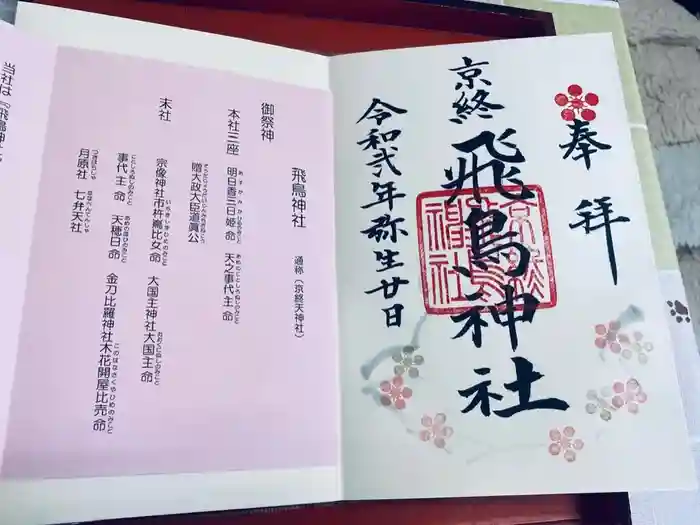 奉拝
京終
飛鳥神社
令和弐年弥生廿日
飛鳥神社 通称(京終天神社)
御祭神
本社三座 明日香三日姫命 天之事代主命
贈大政大臣道真公
末社
宗像神社市杵嶋比女命 大国主神社大国主命
事代主命 天穂日命 金刀比羅神社木花開屋比売命
月原社 七弁天社
当社は『飛鳥神社